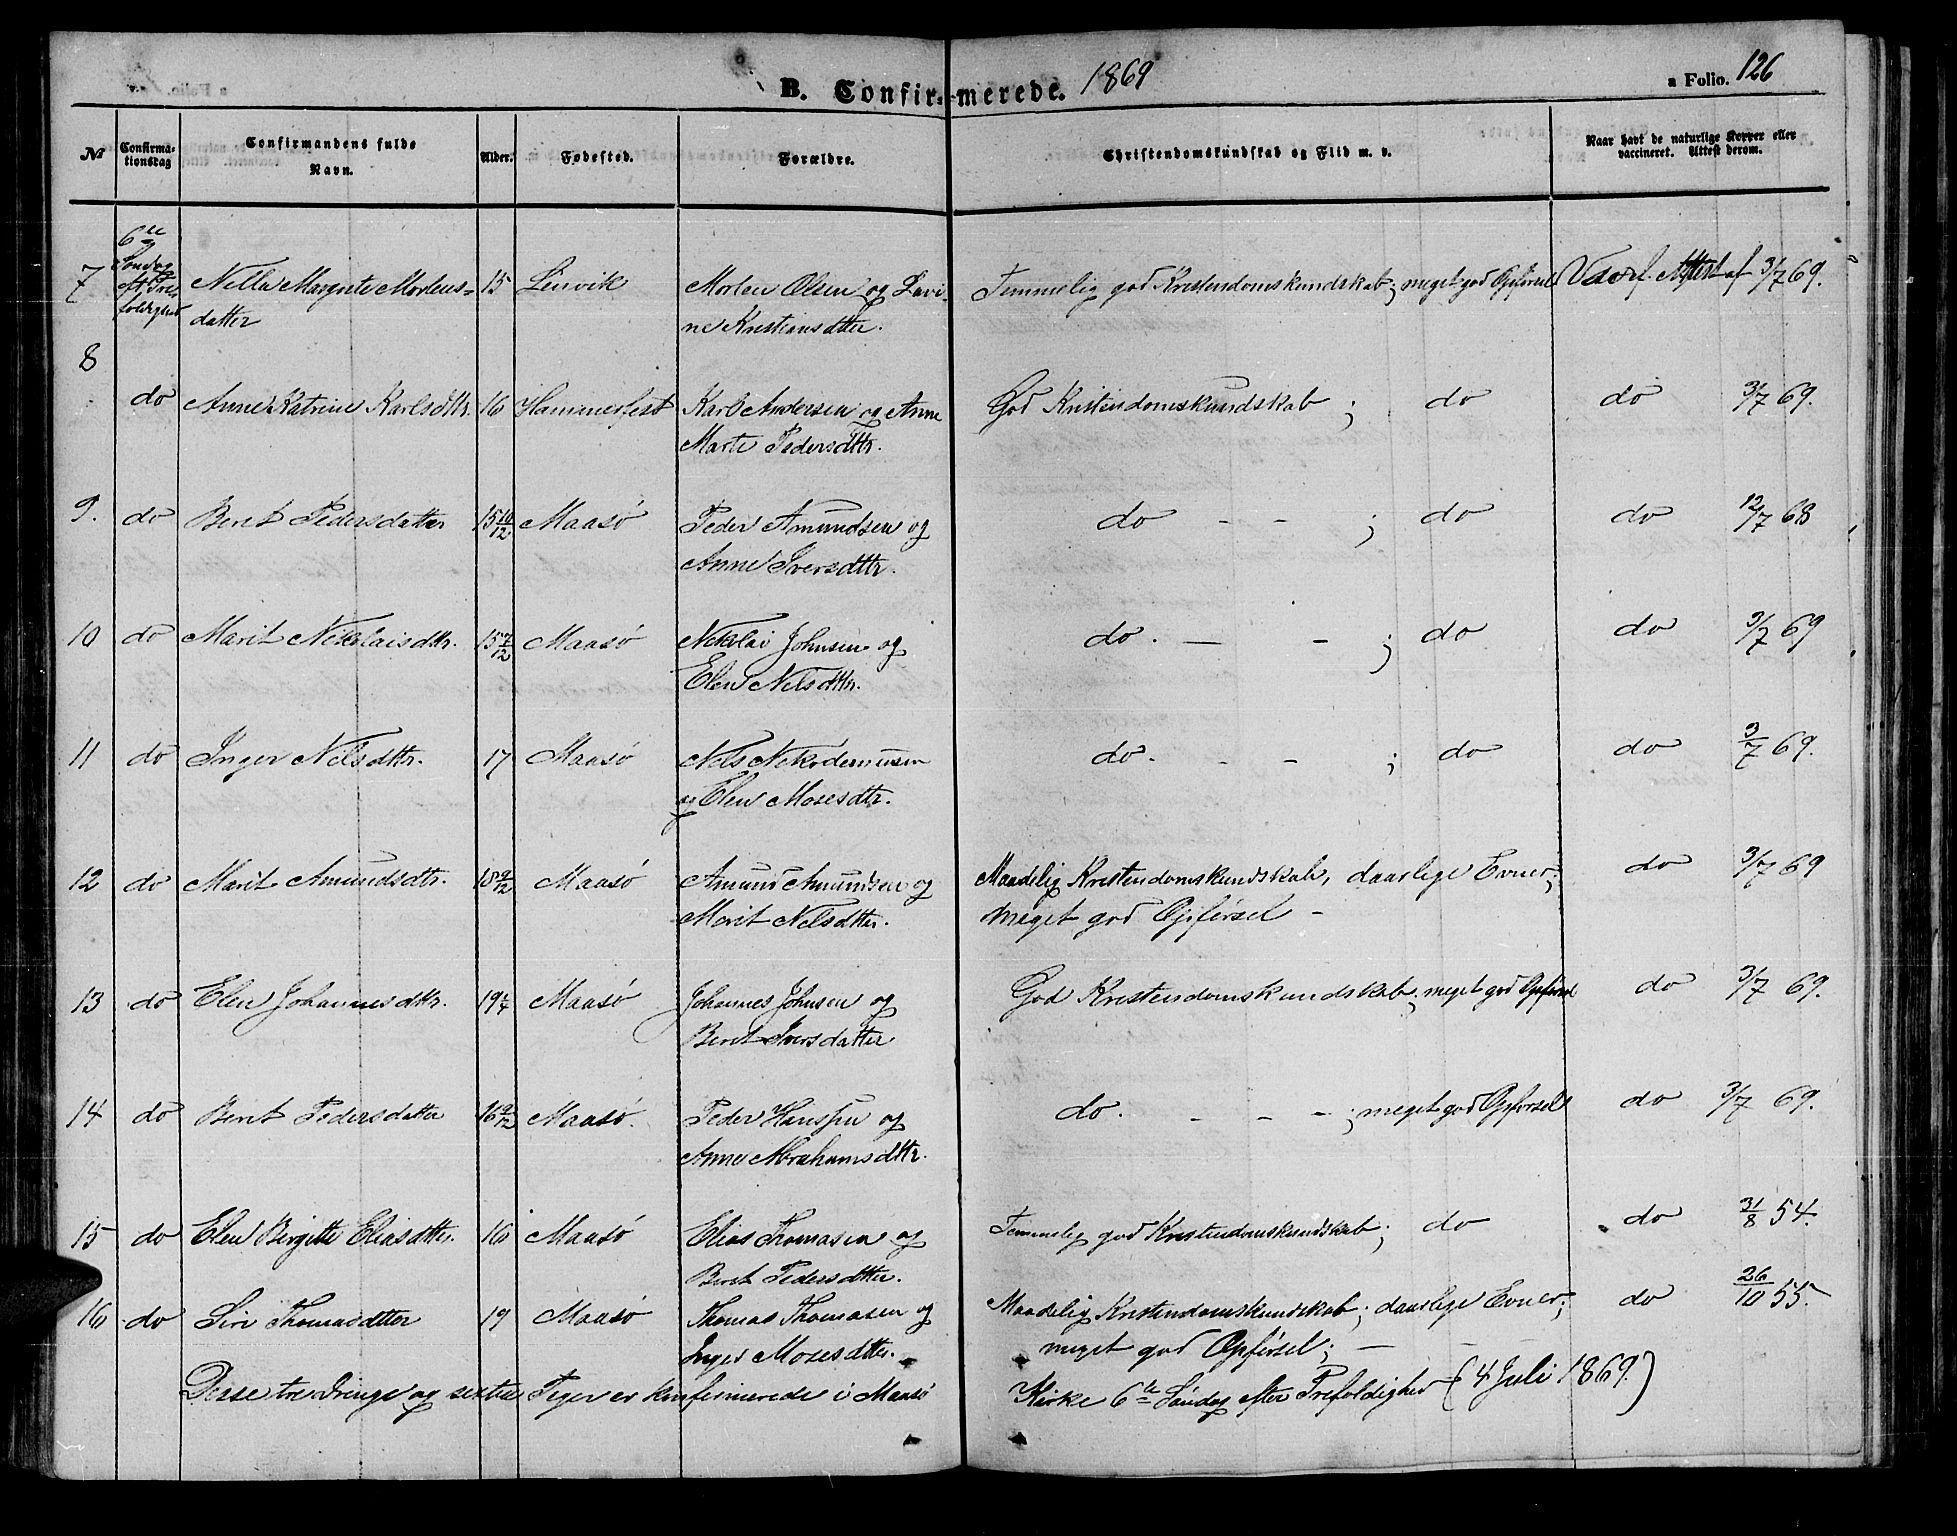 B. Confirmerede. 1869
a Folio. 126
No
Confirmationsdag
Confirmandens fulde Navn.
Alder.
Fødested.
Forældre.
Christendomskundskab og Flid m. v.
Naar havt de naturlige Kopper eller vaccineret. Attest derom.
7 6te Søndag eft Trefoldighed Nella Margrete Mortens- 15 Lenvik Morten Olsen og Lavi- Temmelig god Kristendomskundskab; meget god Opførsel Vacc. Attest af 3/7 69.
datter ne Kristiansdtter.
8 do Anne Katrine Karlsdtr. 16 Hammerfest Karl Andersen og Anne God Kristendomskundskab ; do do 3/7 69.
Marte Pedersdttr.
9. do Beret Pedersdatter 15 10/12 Maasö Peder Amundsen og do - - ; do do 12/7 68
Anne Iversdttr.
10 do Marit Nikolaisdtr. 15 7/12 Maasö Nikolai Johnsen og do. - - ; do do 3/7 69
Elen Nilsdttr.
11 do Inger Nilsdttr. 17 Maasö Nils Nikodemusen do. - - ; do do 3/7 69.
og Elen Mosesdtr.
12 do Marit Amundsdtr. 18 9/12 Maasö Amund Amundsen og Maadelig Kristendomskundskab, daarlige Evner; do 3/7 69
Marit Nilsdtter. meget god Opførsel -
13 do Elen Johannesdtr. 19 1/4 Maasö Johannes Johnsen og God Kristendomskundskab; meget god Opførsel do 3/7 69.
Berit Iversdatter
14 do Berit Pedersdatter 16 9/12 Maasö. Peder Hanssen og do. - - - ; meget god Opførsel do 3/7 69.
Anne Abrahamsdttr.
15 do Elen Birgitte Eliasdtter. 16 Maasö Elias Thomasen og Temmelig god Kristendomskundskab; do do 31/8 54.
Berit Pedersdtter.
16 do Siri Thomasdtter 19 Maasö Thomas Thomasen og Maadelig Kristendomskundskab; daarlige Evner; do 26/10 55.
Inger Mosesdtter. meget god Opførsel; -
Disse tre Drenge og sexten Piger er konfirmerede i Maasö Kirke 6te Søndag efter Trefoldighed (4 Juli 1869.)